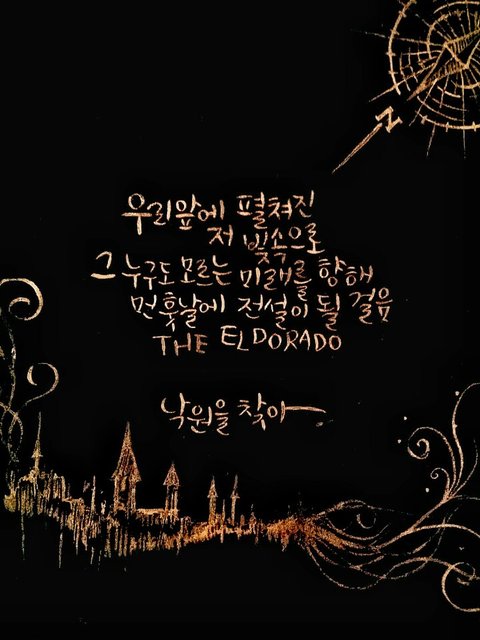 우리앞에 펼쳐진
저 빛속으로
그 누구도 모르는 미래를 향해
먼 훗날에 전설이 될 걸음
THE ELDORADO
낙원을 찾아~
N